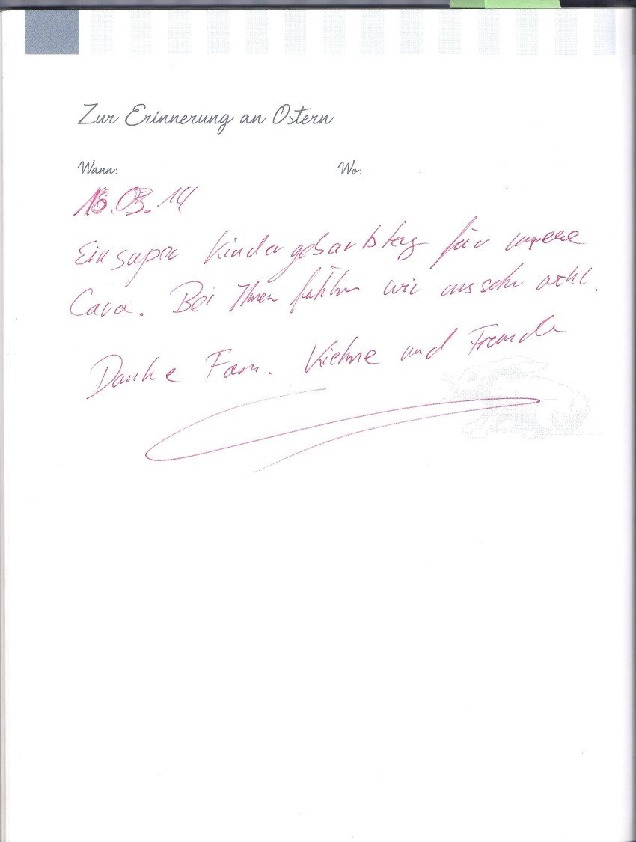 Zur Erinnerung an Ostern
Wann: Wo:
16.03.14
Ein super Kindergeburtstag für unsere
Cara. Bei Ihnen fühlen wir uns sehr wohl.
Danke Fam. Kiehne und Freunde